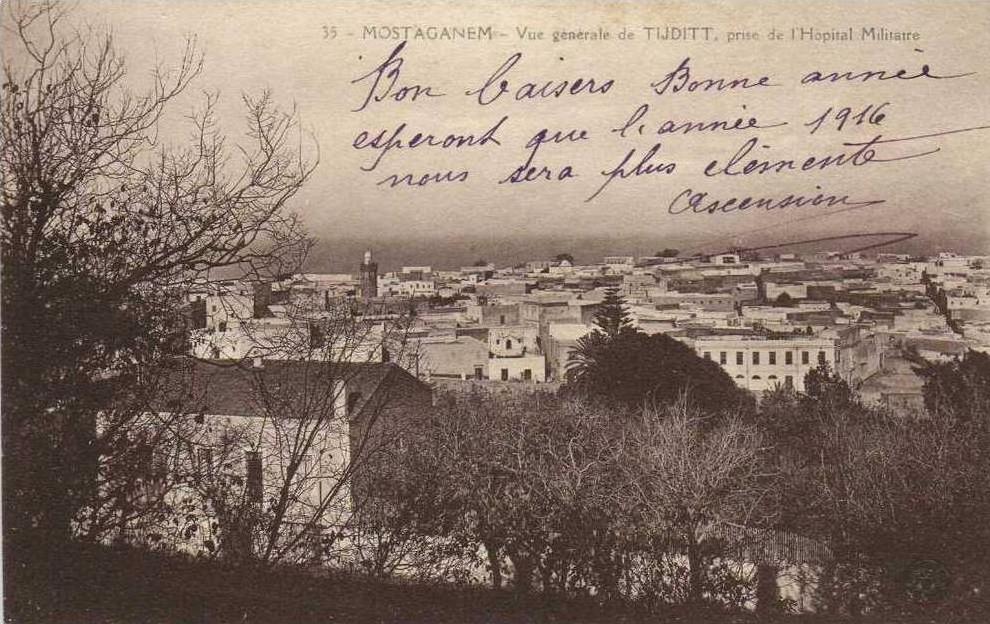 35 - MOSTAGANEM - Vue générale de TIJDITT, prise de l'Hôpital Militaire
Bon baisers Bonne année
esperont que l'année 1916
nous sera plus clémente
Ascension